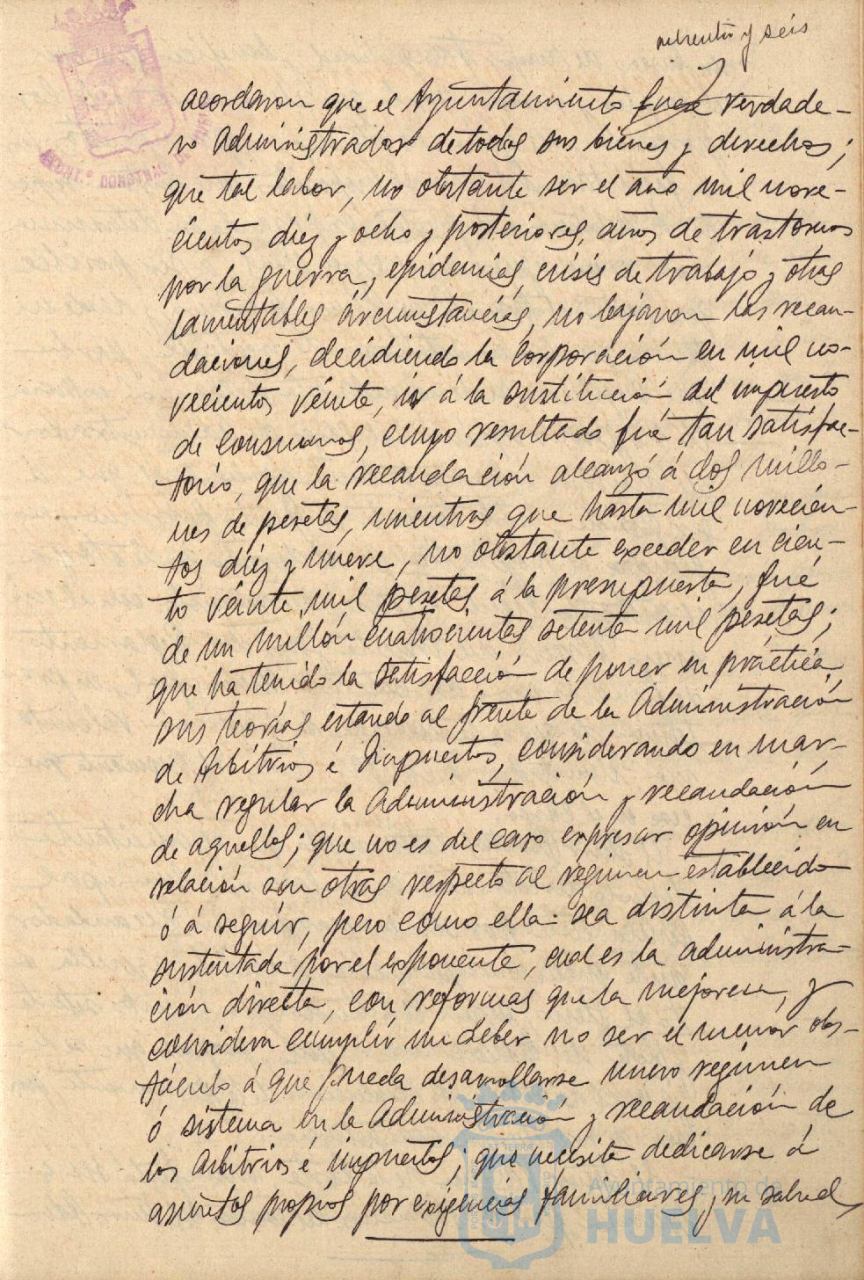 y seis
acordaron que el Ayuntamiento fuera verdade-
ro administrador de todos sus bienes y derechos;
que tal labor, no obstante ser el año mil nove-
cientos diez y ocho y posteriores, años de trastornos
por la guerra, epidemias, crisis de trabajo y otras
lamentables circunstancias, no bajaron las recau-
daciones, decidiendo la Corporación en mil no-
vecientos veinte, ir á la sustitución del impuesto
de Consumos, cuyo resultado fué tan satisfac-
torio, que la recaudación alcanzó á dos millo-
nes de pesetas, mientras que hasta mil novecien-
tos diez y nueve, no obstante exceder en cien-
to veinte mil pesetas á la presupuesta, fué
de un millón cuatrocientas setenta mil pesetas;
que ha tenido la satisfacción de poner en práctica
sus teorías estando al frente de la Administración
de Arbitrios é Impuestos, considerando en mar-
cha regular la Administración y recaudación
de aquellos; que no es del caso expresar opinión en
relación con otras respecto al regimen establecido
ó á seguir, pero como ella sea distinta á la
sustentada por el exponente, cual es la administra-
ción directa, con reformas que la mejoren, y
considera cumplir un deber no ser el menor obs-
táculo á que pueda desarrollarse nuevo regimen
ó sistema en la Administración y recaudación de
los Arbitrios é impuestos; que necesita dedicarse á
asuntos propios por exigencias familiares, su salud
Ayuntamiento de
HUELVA